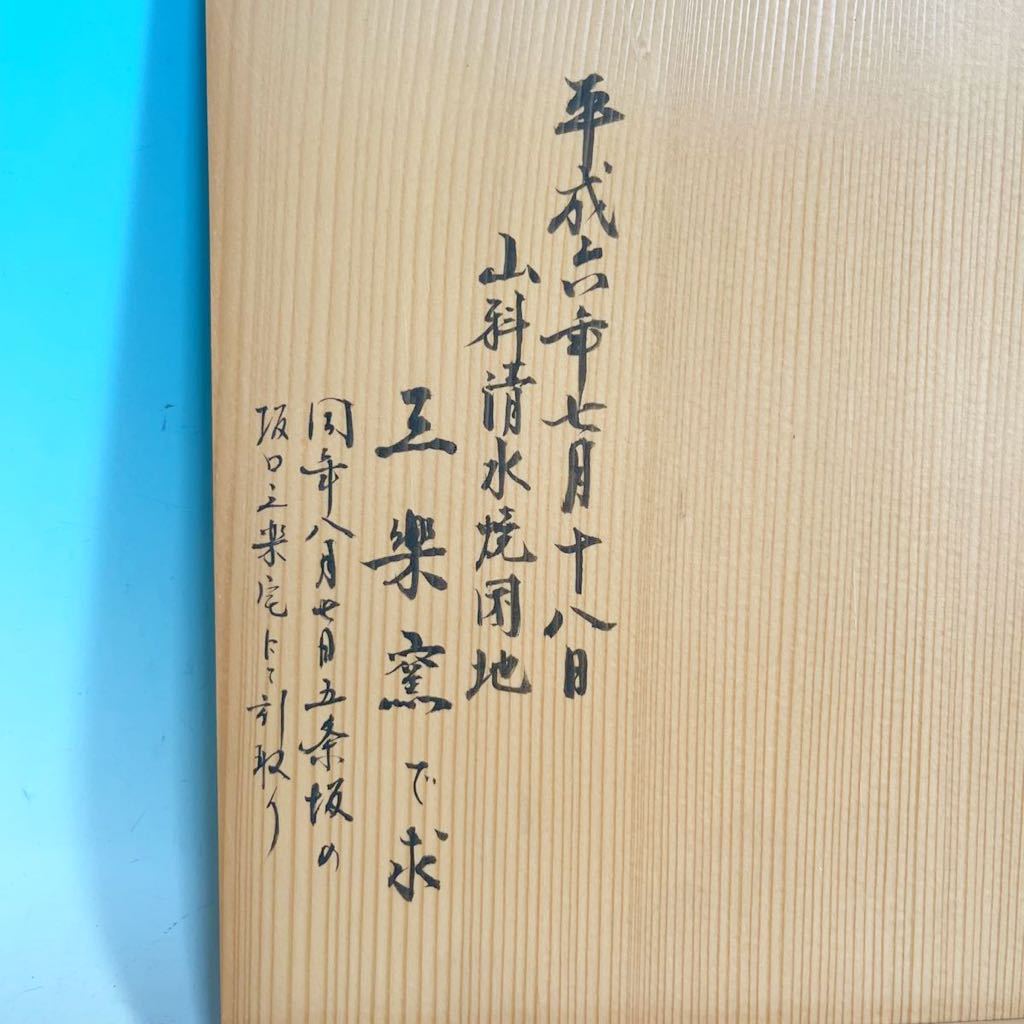 平成六年七月十八日
山科清水焼団地
三樂窯で求
同年八月七日五条坂の
坂口三楽宅にて引取り